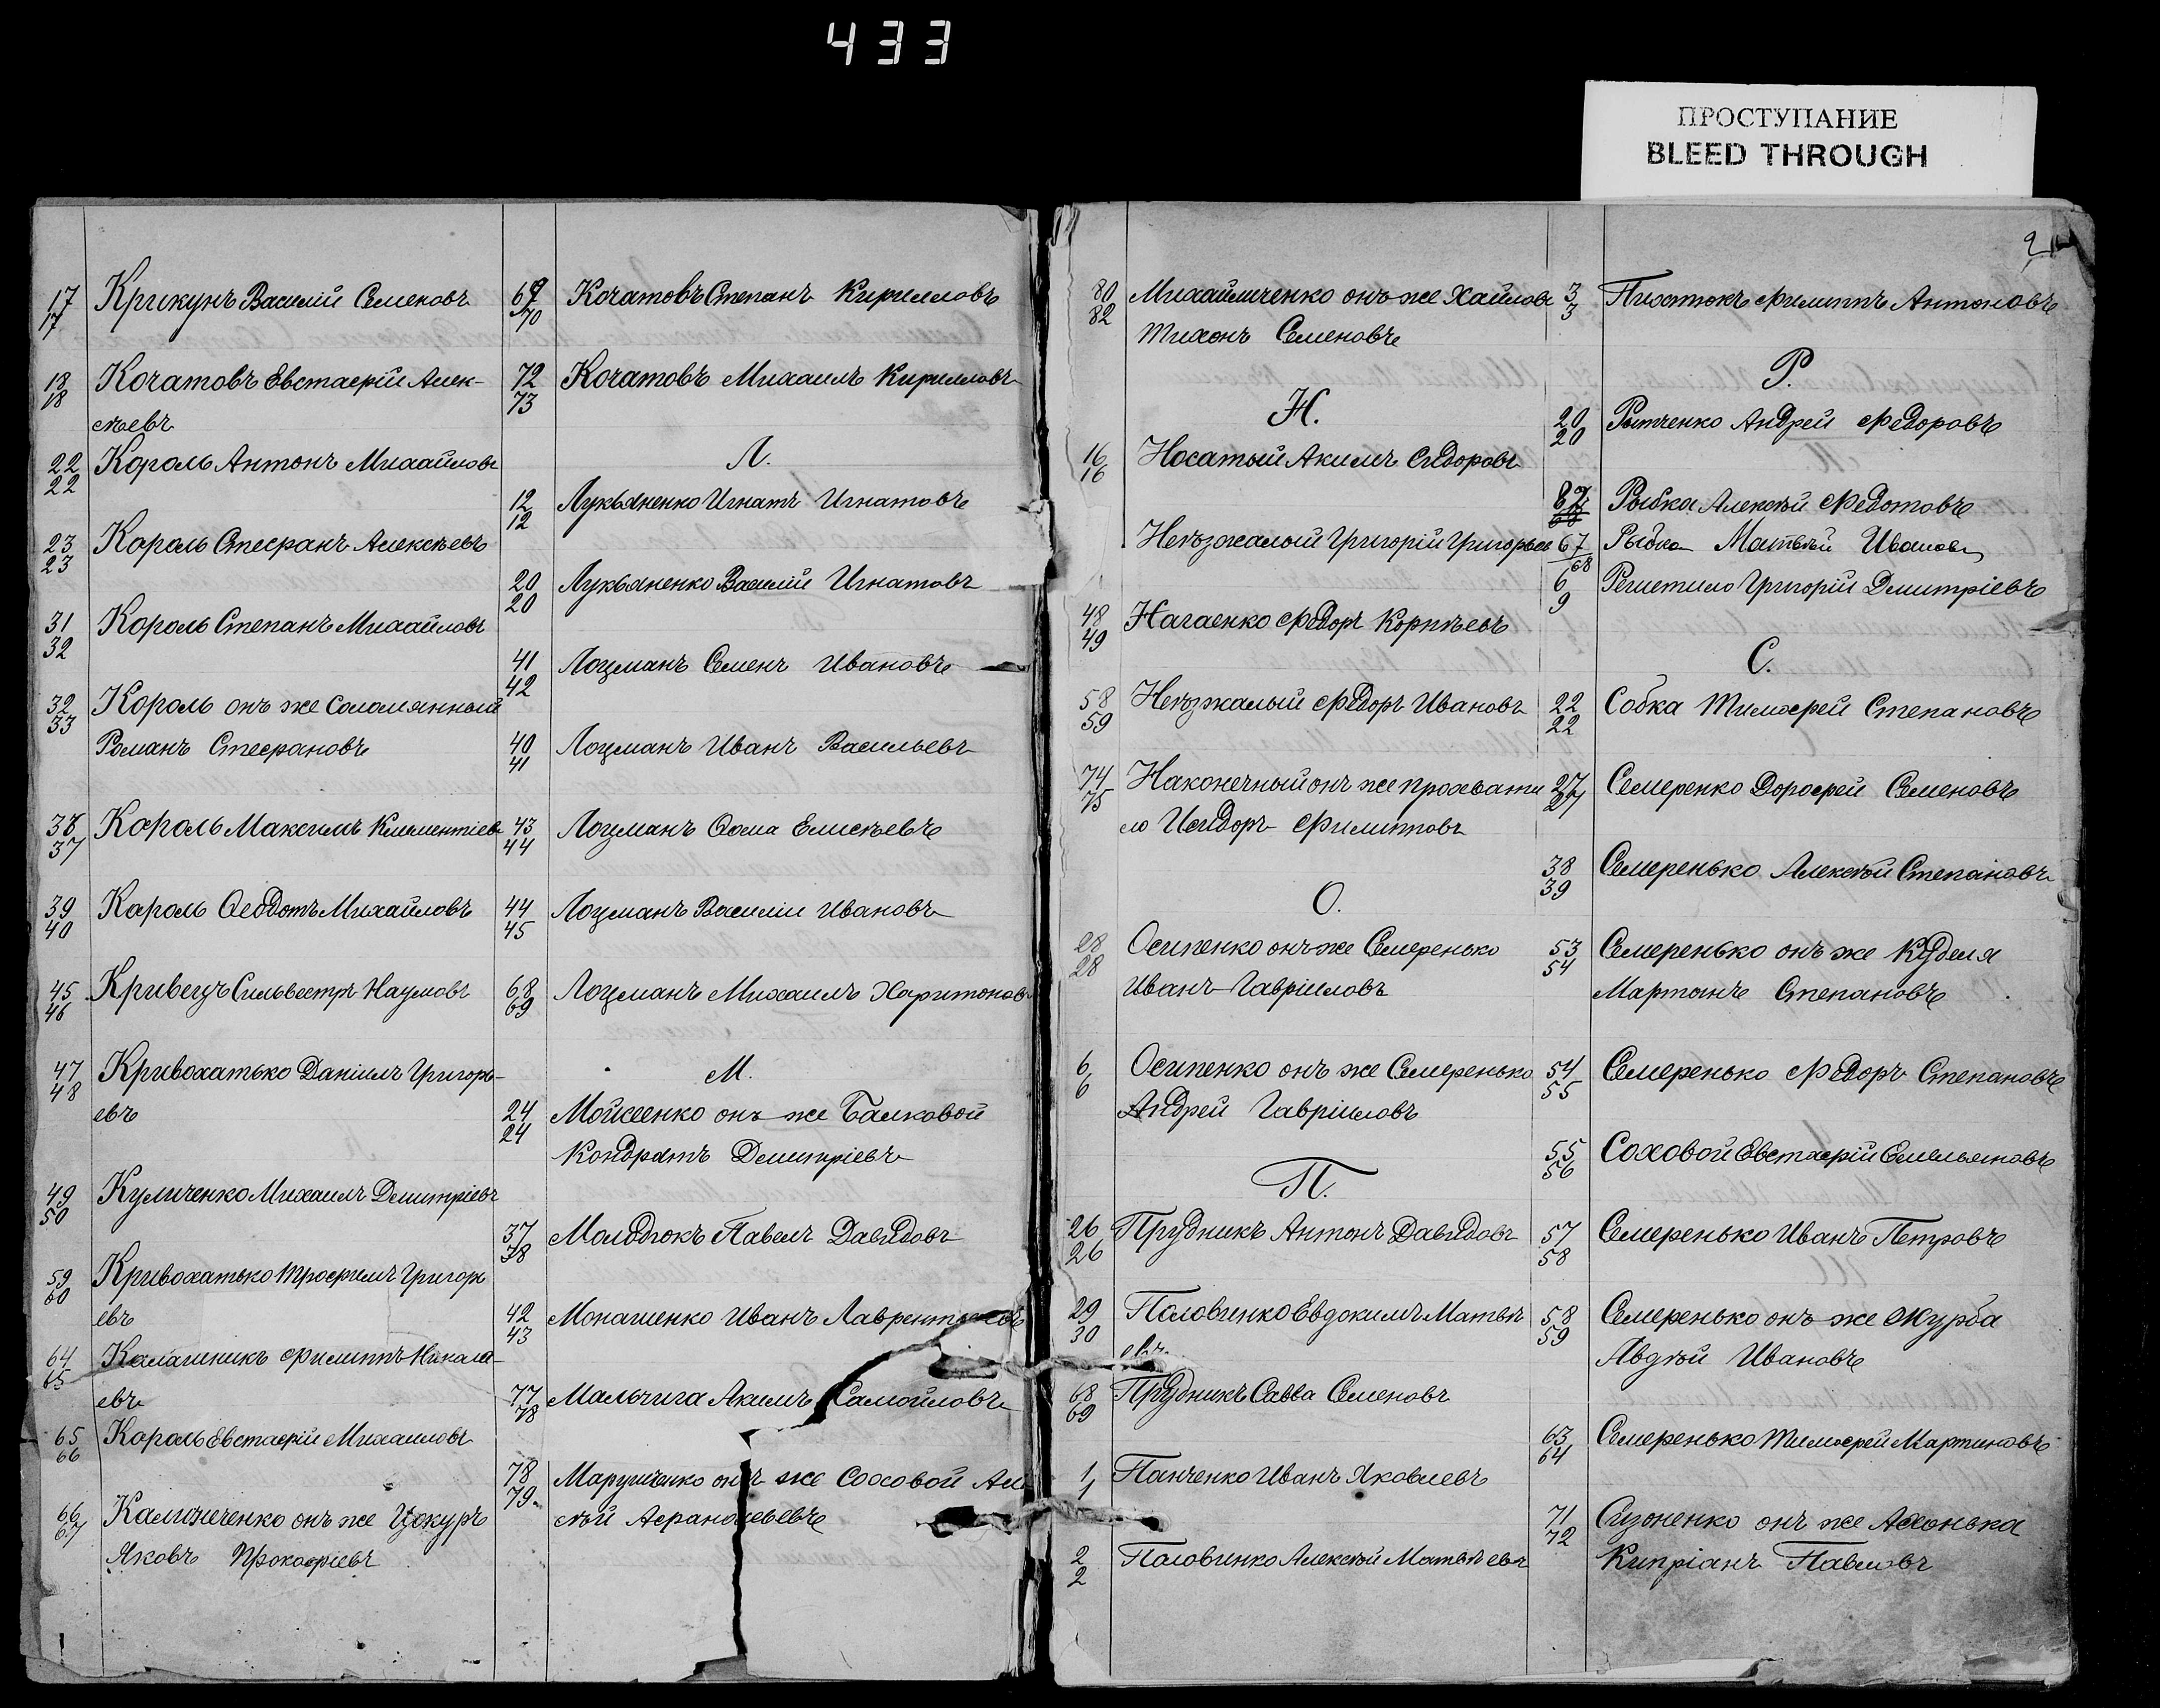 433
ПРОСТУПАНИЕ
BLEED THROUGH
17 Крикунъ Василій Семеновъ
17
18 Кочатовъ Евстафій Алек-
18
сѣевъ
22 Король Антонъ Михайловъ
22
23 Король Стефанъ Алексѣевъ
23
31 Король Степанъ Михайловъ
32
32 Король онъ же Соломянный
33
Романъ Стефановъ
38 Король Максимъ Климентіевъ
37
39 Король Ѳеодотъ Михайловъ
40
45 Кривецъ Сильвестръ Наумовъ
46
47 Кривохатько Даніилъ Григорь-
48
евъ
49 Куличенко Михаилъ Димитріевъ
50
59 Кривохатько Трофимъ Григорь
60
евъ
64 Калашникъ Филиппъ Никола-
65
евъ
65 Король Евстафій Михаиловъ
66
66 Калиниченко онъ же Цокуръ
67
Яковъ Прокофіевъ
69 Кочатовъ Степанъ Кирилловъ
70
72 Кочатовъ Михаилъ Кирилловъ
73
Л.
12 Лукьяненко Игнатъ Игнатовъ
12
20 Лукьяненко Василій Игнатовъ
20
41 Лоцманъ Семенъ Ивановъ
42
40 Лоцманъ Иванъ Васильевъ
41
43 Лоцманъ Ѳома Елисѣевъ
44
44 Лоцманъ Василій Ивановъ
45
68 Лоцманъ Михаилъ Харитоновъ
69
М.
24 Мойсеенко онъ же Балковой
24
Кондратъ Димитріевъ
37 Молодюкъ Павелъ Давидовъ
38
42 Монашенко Иванъ Лаврентьевъ
43
77 Мальчига Акимъ Самойловъ
78
78 Марущенко онъ же Соховой Але
79
сѣй Афанасьевъ
80 Михайличенко онъ же Хайловъ
82
Тихонъ Семеновъ
Н.
16 Носатый Акимъ Сидоровъ
16
Неѣзжалый Григорій Григорьев
48 Нагаенко Федоръ Корнѣевъ
49
58 Неѣзжалый Федоръ Ивановъ
59
74 Наконечный онъ же Прохвати
75
ло Исидоръ Филипповъ
О.
28 Осипенко онъ же Семеренько
28
Иванъ Гавріиловъ
6 Осипенко онъ же Семеренько
6
Андрей Гавріиловъ
П.
26 Прудникъ Антонъ Давидовъ
26
29 Половинко Евдокимъ Матвѣ
30
евъ
68 Прудникъ Савва Семеновъ
69
1 Панченко Иванъ Яковлевъ
1
2 Половинко Алексѣй Матвѣевъ
2
9
3 Филиппъ Антоновъ
3
Р.
20 Рытченко Андрей Федоровъ
20
87 Рыбка Алексѣй Федотовъ
67 Рыбка Матвѣй Ивановъ
68
6 Решетило Григорій Димитріевъ
9
С.
22 Собка Тимофей Степановъ
22
27 Семеренко Дорофей Семеновъ
27
38 Семеренько Алексѣй Степановъ
39
53 Семеренько онъ же Куделя
54
Мартынъ Степановъ
54 Семеренько Федоръ Степановъ
55
55 Соховой Евстафій Емельяновъ
56
57 Семеренько Иванъ Петровъ
58
58 Семеренько онъ же Журба
59
Авдѣй Ивановъ
63 Семеренько Тимофей Мартиновъ
64
71 Сизоненко онъ же Ахонька
72
Кипріанъ Павловъ